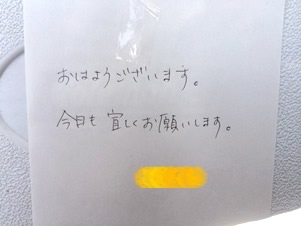 おはようございます。
今日も宜しくお願いします。